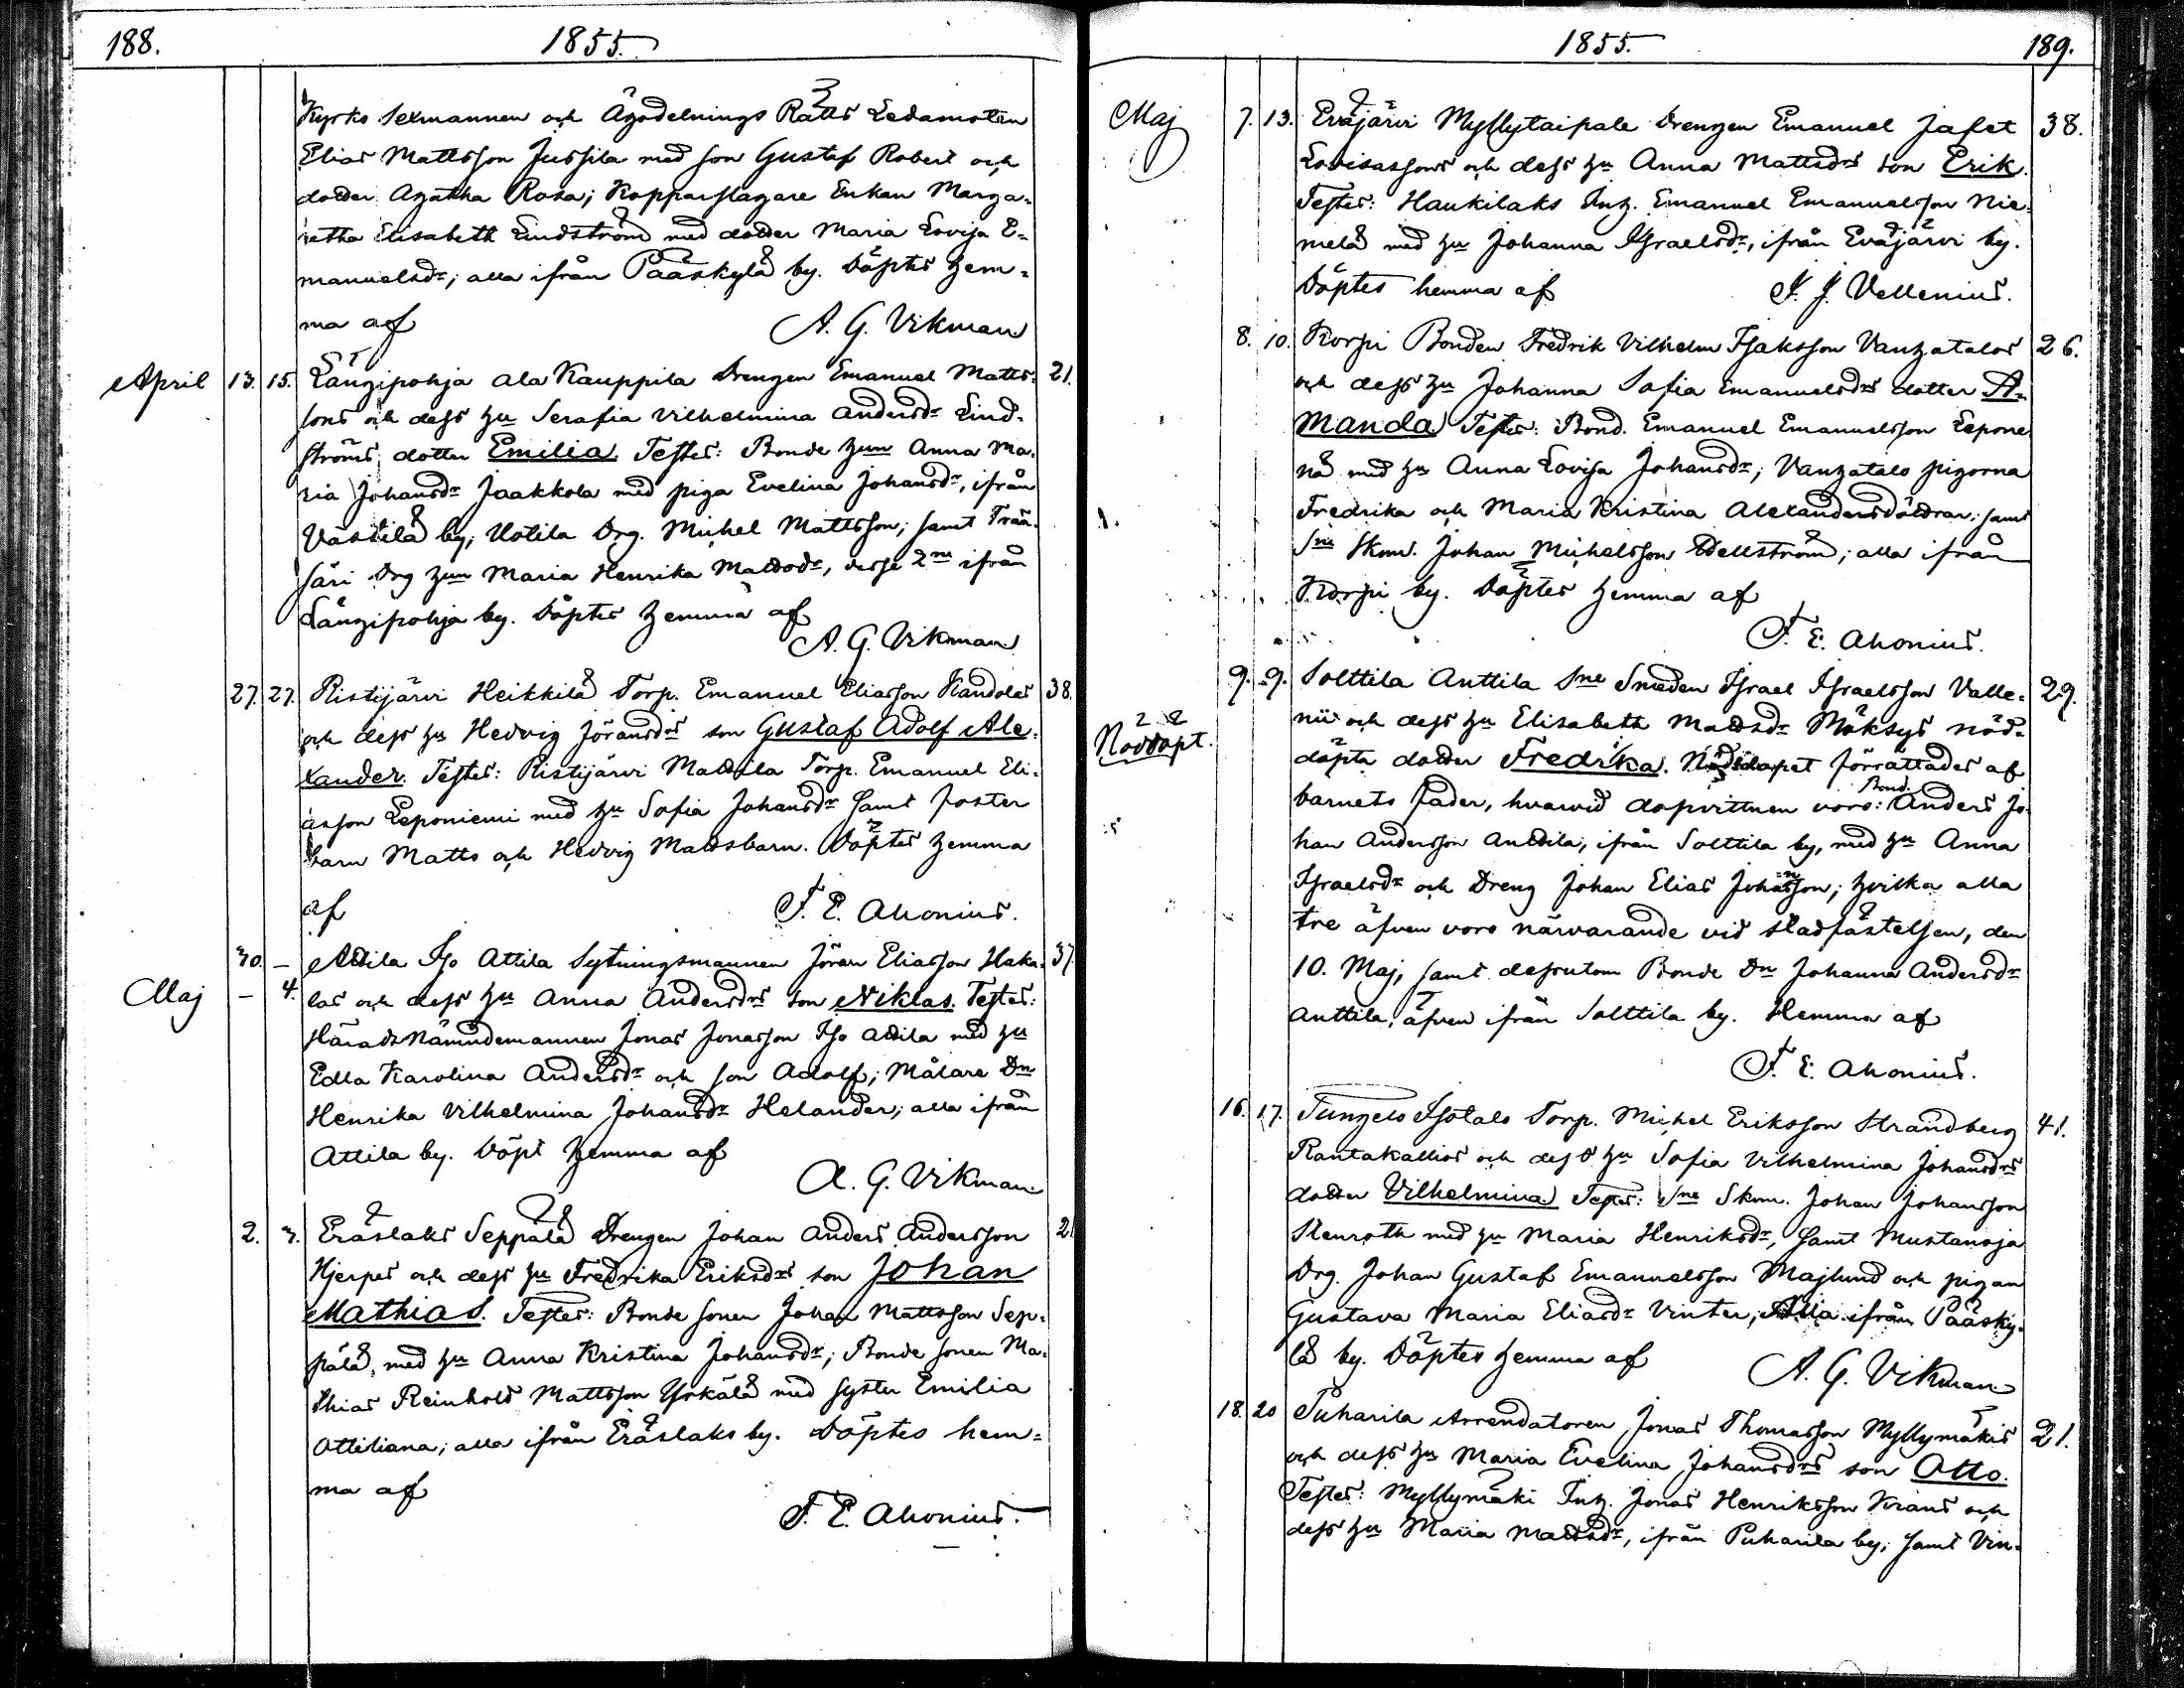 188. 1855.
Kyrko Sexmannen och Ägodelnings Rätts Ledamoten
Elias Mattsson Jussila med son Gustaf Robert och
dotter Agatha Rosa; Kopparslagare Enkan Marga-
retha Elisabeth Lindström med dotter Maria Lovisa E-
manuelsdr; alla ifrån Pääskylä by. Döptes hem-
ma af A. G. Vikman
April 13. 15. Längipohja Ala Kauppila Drengen Emanuel Matts- 21.
sons och dess hu Serafia Vilhelmina Andersdr Lind-
ströms dotter Emilia. Testes: Bonde hun Anna Ma-
ria Johansdr Jaakkola med piga Evelina Johansdr, ifrån
Västilä by; Uotila Drg. Michel Mattsson, samt Trää-
säri Drg hun Maria Henrika Mattsdr, desse 2ne ifrån
Längipohja by. Döptes hemma af
A. G. Vikman
27. 27. Ristijärvi Heikkilä Torp. Emanuel Eliasson Kandolas 38.
och dess hu Hedvig Jöransdrs son Gustaf Adolf Ale-
xander. Testes: Ristijärvi Mattila Torp. Emanuel Eli-
asson Leponiemi med hu Sofia Johansdr samt foster
barn Matts och Hedvig Mattsbarn. Döptes hemma
af F. E. Ahonius.
30. – Attila Iso Attila Sytningsmannen Jöran Eliasson Haka- 37
Maj – 4. las och dess hu Anna Andersdrs son Niklas. Testes:
Härads Nämndemannen Jonas Jonasson Iso Attila med hu
Edla Karolina Andersdr och son Adolf; Målare Dn
Henrika Vilhelmina Johansdr Helander; alla ifrån
Attila by. Döpt hemma af
A. G. Vikman
2. 3. Eräslaks Seppälä Drengen Johan Anders Andersson 2
Hjerpes och dess hu Fredrika Eriksdrs son Johan
Mathias. Testes: Bonde sonen Johan Mattsson Sep-
pälä, med hu Anna Kristina Johansdr; Bonde sonen Ma-
thias Reinhold Mattsson Yrkälä med syster Emilia
Ottiliana; alla ifrån Eräslaks by. Döptes hem-
ma af
F. E. Ahonius.
1855. 189.
Maj 7. 13. Eväjärvi Myllytaipale Drengen Emanuel Jafet 38.
Lovisassons och dess hu Anna Mattsdrs son Erik.
Testes: Haukilaks Inh. Emanuel Emanuelsson Nie-
melä med hu Johanna Israelsdr, ifrån Eväjärvi by.
Döptes hemma af J. J. Vellenius.
8. 10. Korpi Bonden Fredrik Vilhelm Isaksson Vanhatalos 26.
och dess hu Johanna Sofia Emanuelsdrs dotter A-
manda. Testes: Bond. Emanuel Emanuelsson Lepone
nå med hu Anna Lovisa Johansdr; Vanhatalo pigorna
Fredrika och Maria Kristina Alexandersdöttrar, samt
Sne Skom. Johan Michelsson Wellström; alla ifrån
Korpi by. Döptes hemma af
F. E. Ahonius.
9. 9. Solttila Anttila Sne Smeden Israel Israelsson Valle- 29.
Nöddöpt.
nii och dess hu Elisabeth Mattsdr Möksys nöd-
döpta dotter Fredrika. Nöddopet förrättades af
barnets fader, hvarvid dopvittnen voro: Bond. Anders Jo-
han Andersson Anttila, ifrån Solttila by, med hu Anna
Israelsdr och Dreng Johan Elias Johansson; hvilka alla
tre äfven voro närvarande vid stadfästelsen, den
10. Maj, samt dessutom Bonde Dn Johanna Andersdr
Anttila, äfven ifrån Solttila by. Hemma af
F. E. Ahonius.
16. 17. Tunzelo Isotalo Torp. Michel Eriksson Strandberg 41.
Rantakallios och dess hu Sofia Vilhelmina Johansdrs
dotter Vilhelmina. Testes: Sne Skom. Johan Johansson
Stenroth med hu Maria Henriksdr, samt Mustanoja
Drg. Johan Gustaf Emanuelsson Majlund och pigan
Gustava Maria Eliasdr Vinter, Alla ifrån Pääsky-
lä by. Döptes hemma af A. G. Vikman
18. 20 Puharila Arrendatoren Jonas Thomasson Myllymäkis 21.
och dess hu Maria Evelina Johansdrs son Otto.
Testes: Myllymäki Inh. Jonas Henriksson Krans och
dess hu Maria Mattsdr, ifrån Puharila by, samt Vin-